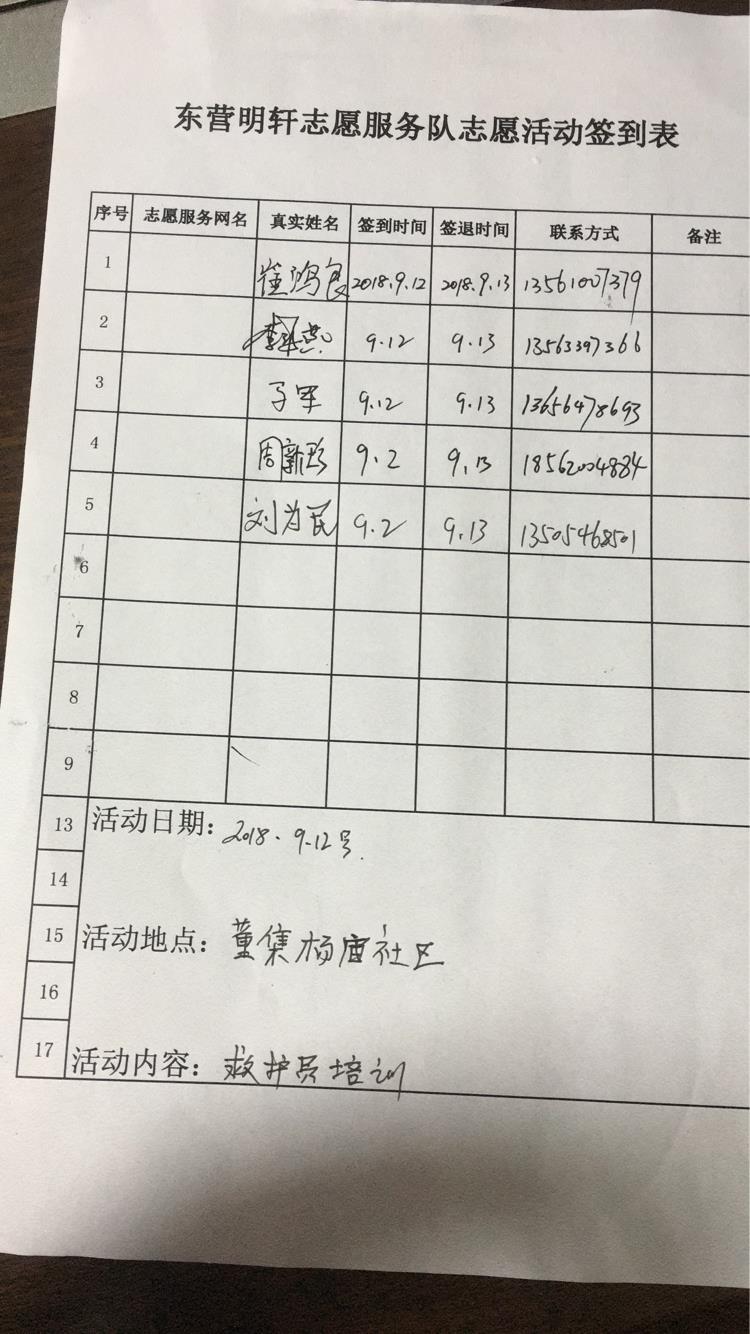 东营明轩志愿服务队志愿活动签到表
序号 志愿服务网名 真实姓名 签到时间 签退时间 联系方式 备注
1 崔鸿良 2018.9.12 2018.9.13 13561007379
2 9.12 9.13 13563397366
3 9.12 9.13 13656478693
4 周新珍 9.2 9.13 18562004884
5 刘为民 9.2 9.13 13505468501
6
7
8
9
13 活动日期: 2018.9.12号
14
15 活动地点: 董集杨庙社区
16
17 活动内容: 救护员培训